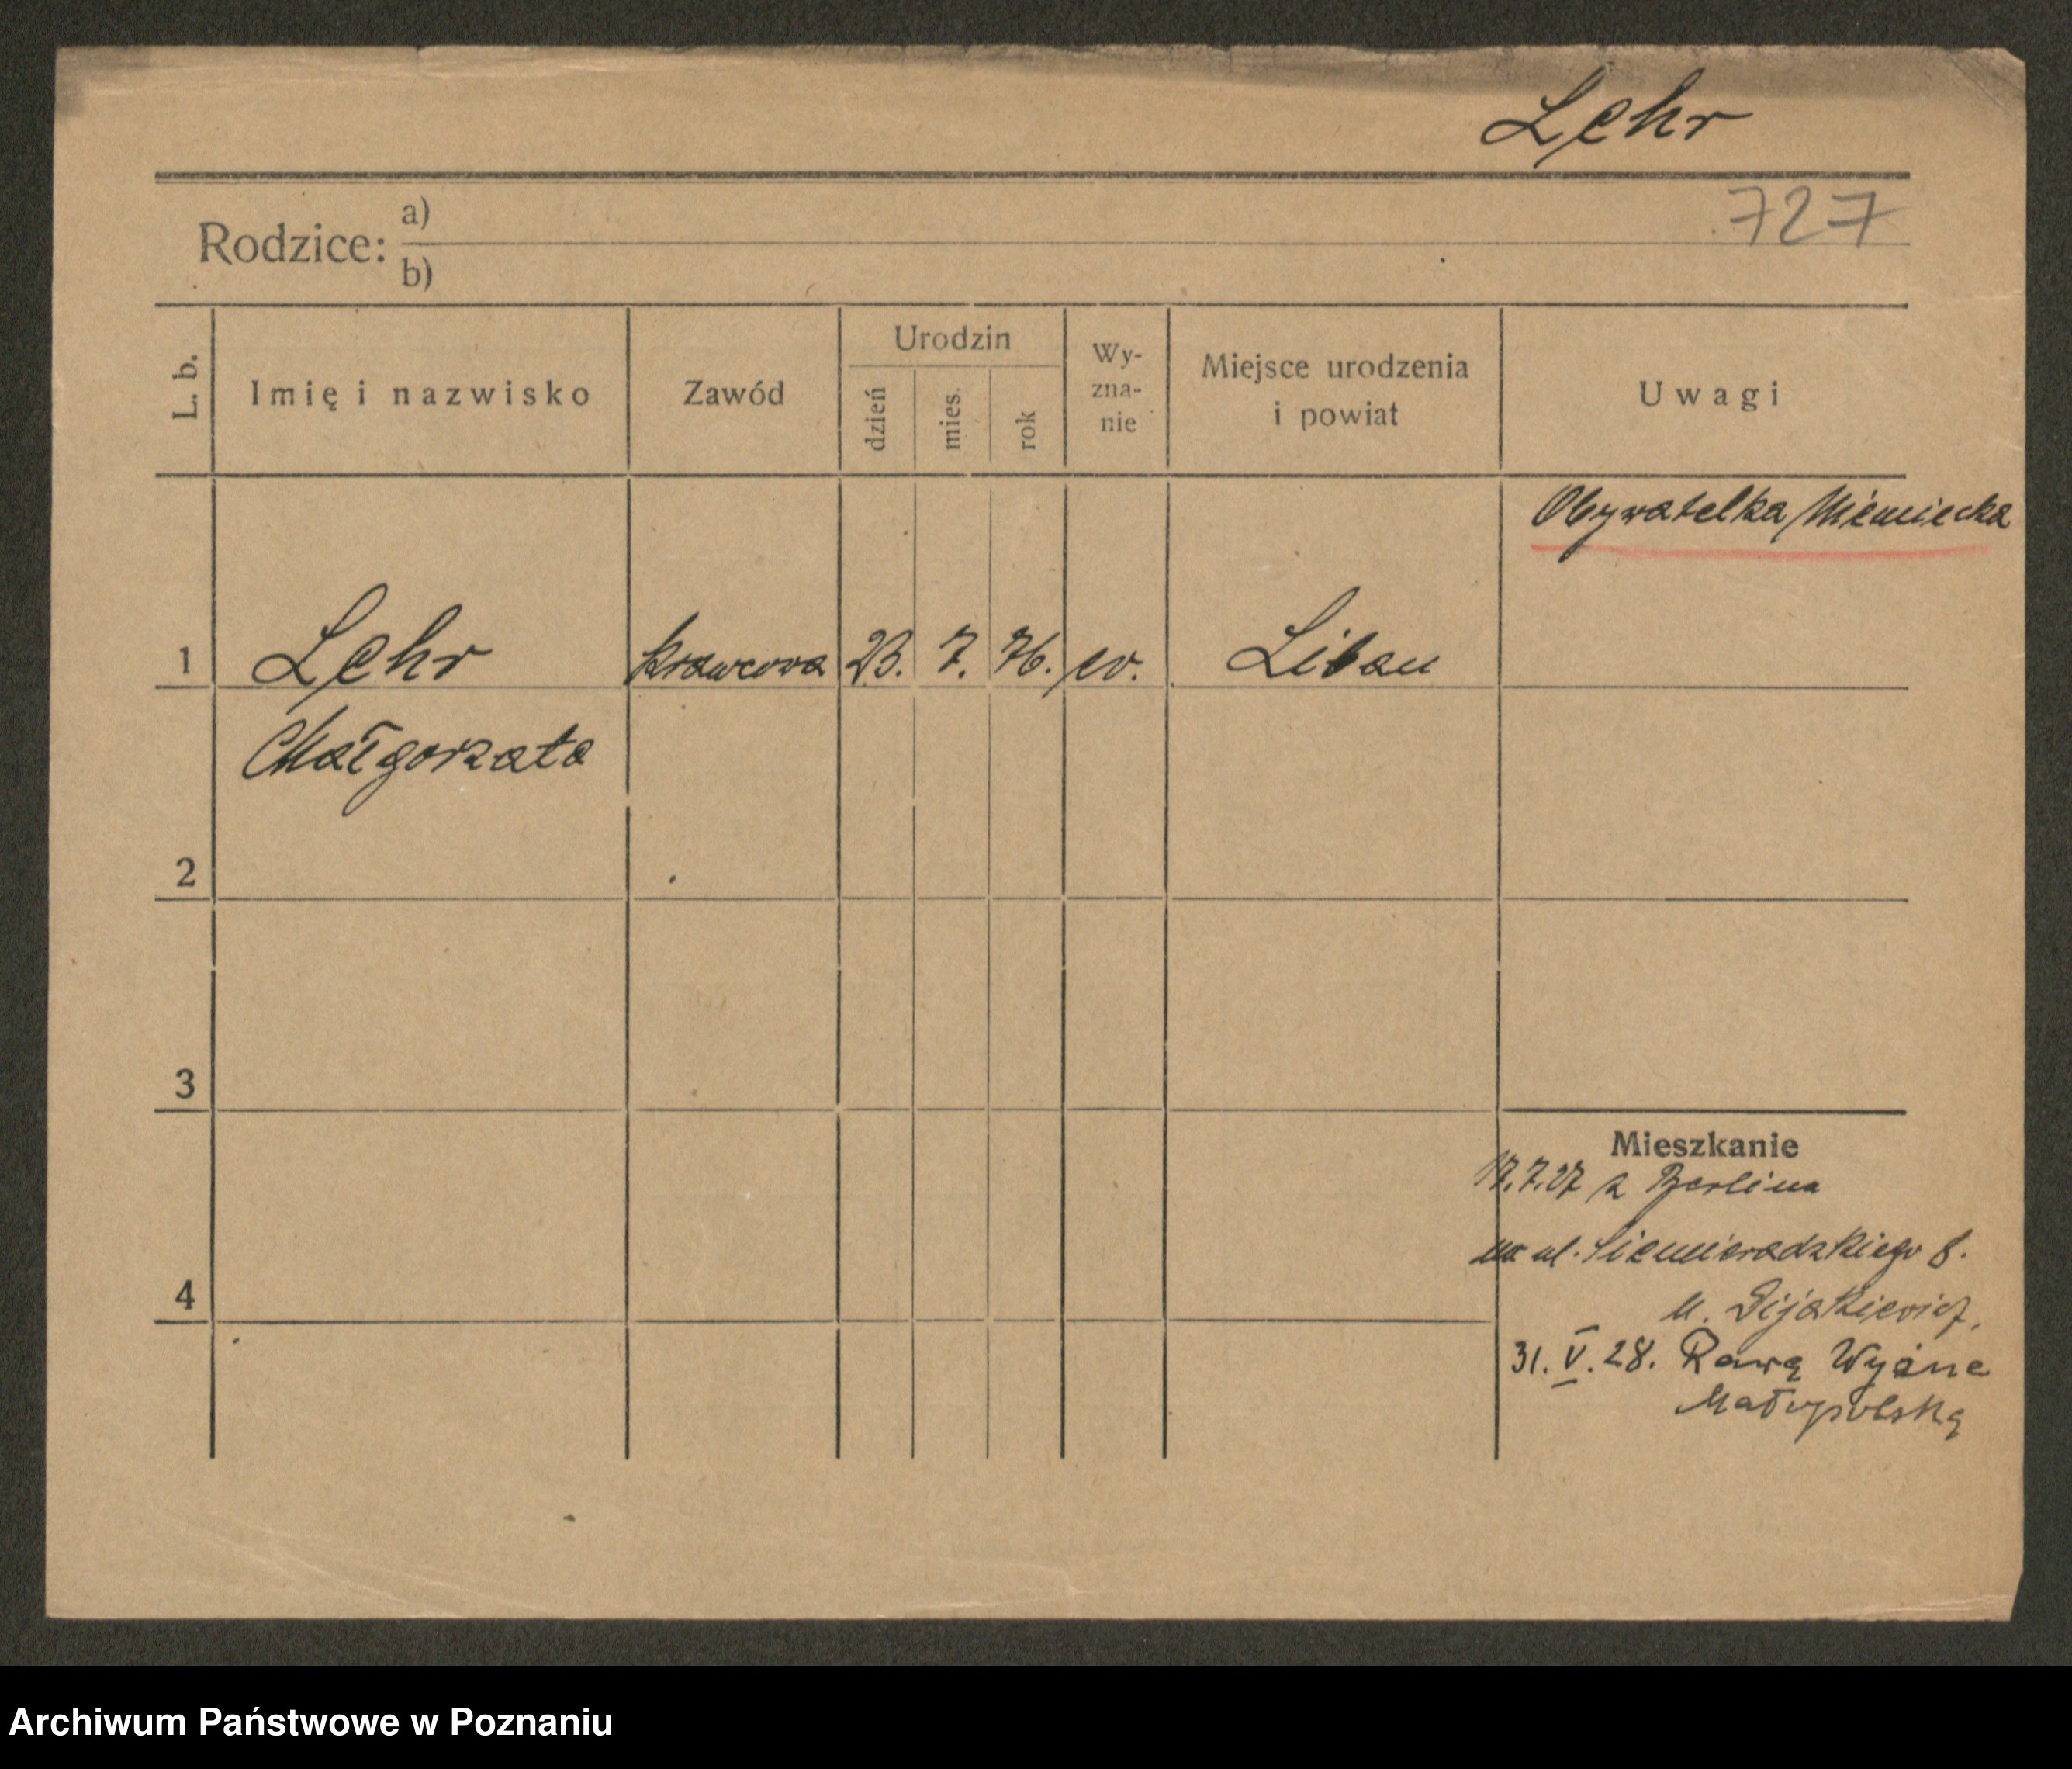 Lehr
727
Rodzice:
a)
b)
L. b.
Imię i nazwisko
Zawód
Urodzin
dzień
mies.
rok
Wy-
zna-
nie
Miejsce urodzenia
i powiat
Uwagi
Obywatelka Niemiecka
1 Lehr krawcowa 23. 7. 76. ev. Libau
Małgorzata
2
3
Mieszkanie
17.7.27 z Berlina
na ul. Siemieradzkiego 8.
4
u.
31. V. 28. Rawę Wyżne
Małopolskę
Archiwum Państwowe w Poznaniu